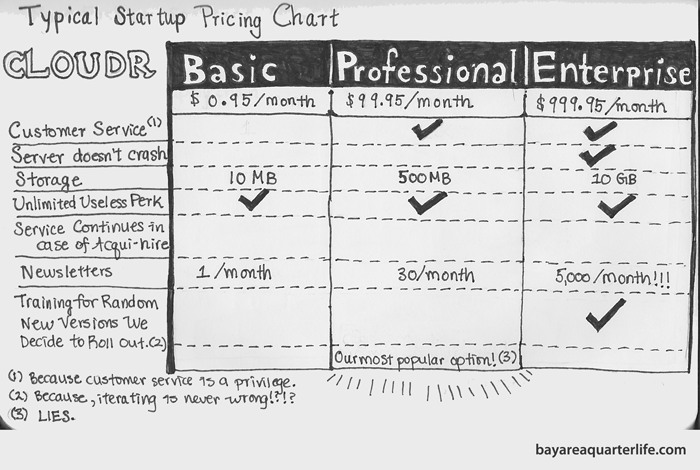 Typical Startup Pricing Chart
CLOUDR Basic Professional Enterprise
$0.95/month $99.95/month $999.95/month
Customer Service(1)
Server doesn't crash
Storage 10 MB 500 MB 10 GiB
Unlimited Useless Perk
Service Continues in
case of Acqui-hire
Newsletters 1/month 30/month 5,000/month!!!
Training for Random
New Versions We
Decide to Roll Out.(2)
Our most popular option!(3)
(1) Because customer service is a privilege.
(2) Because, iterating is never wrong!?!?
(3) LIES.
bayareaquarterlife.com